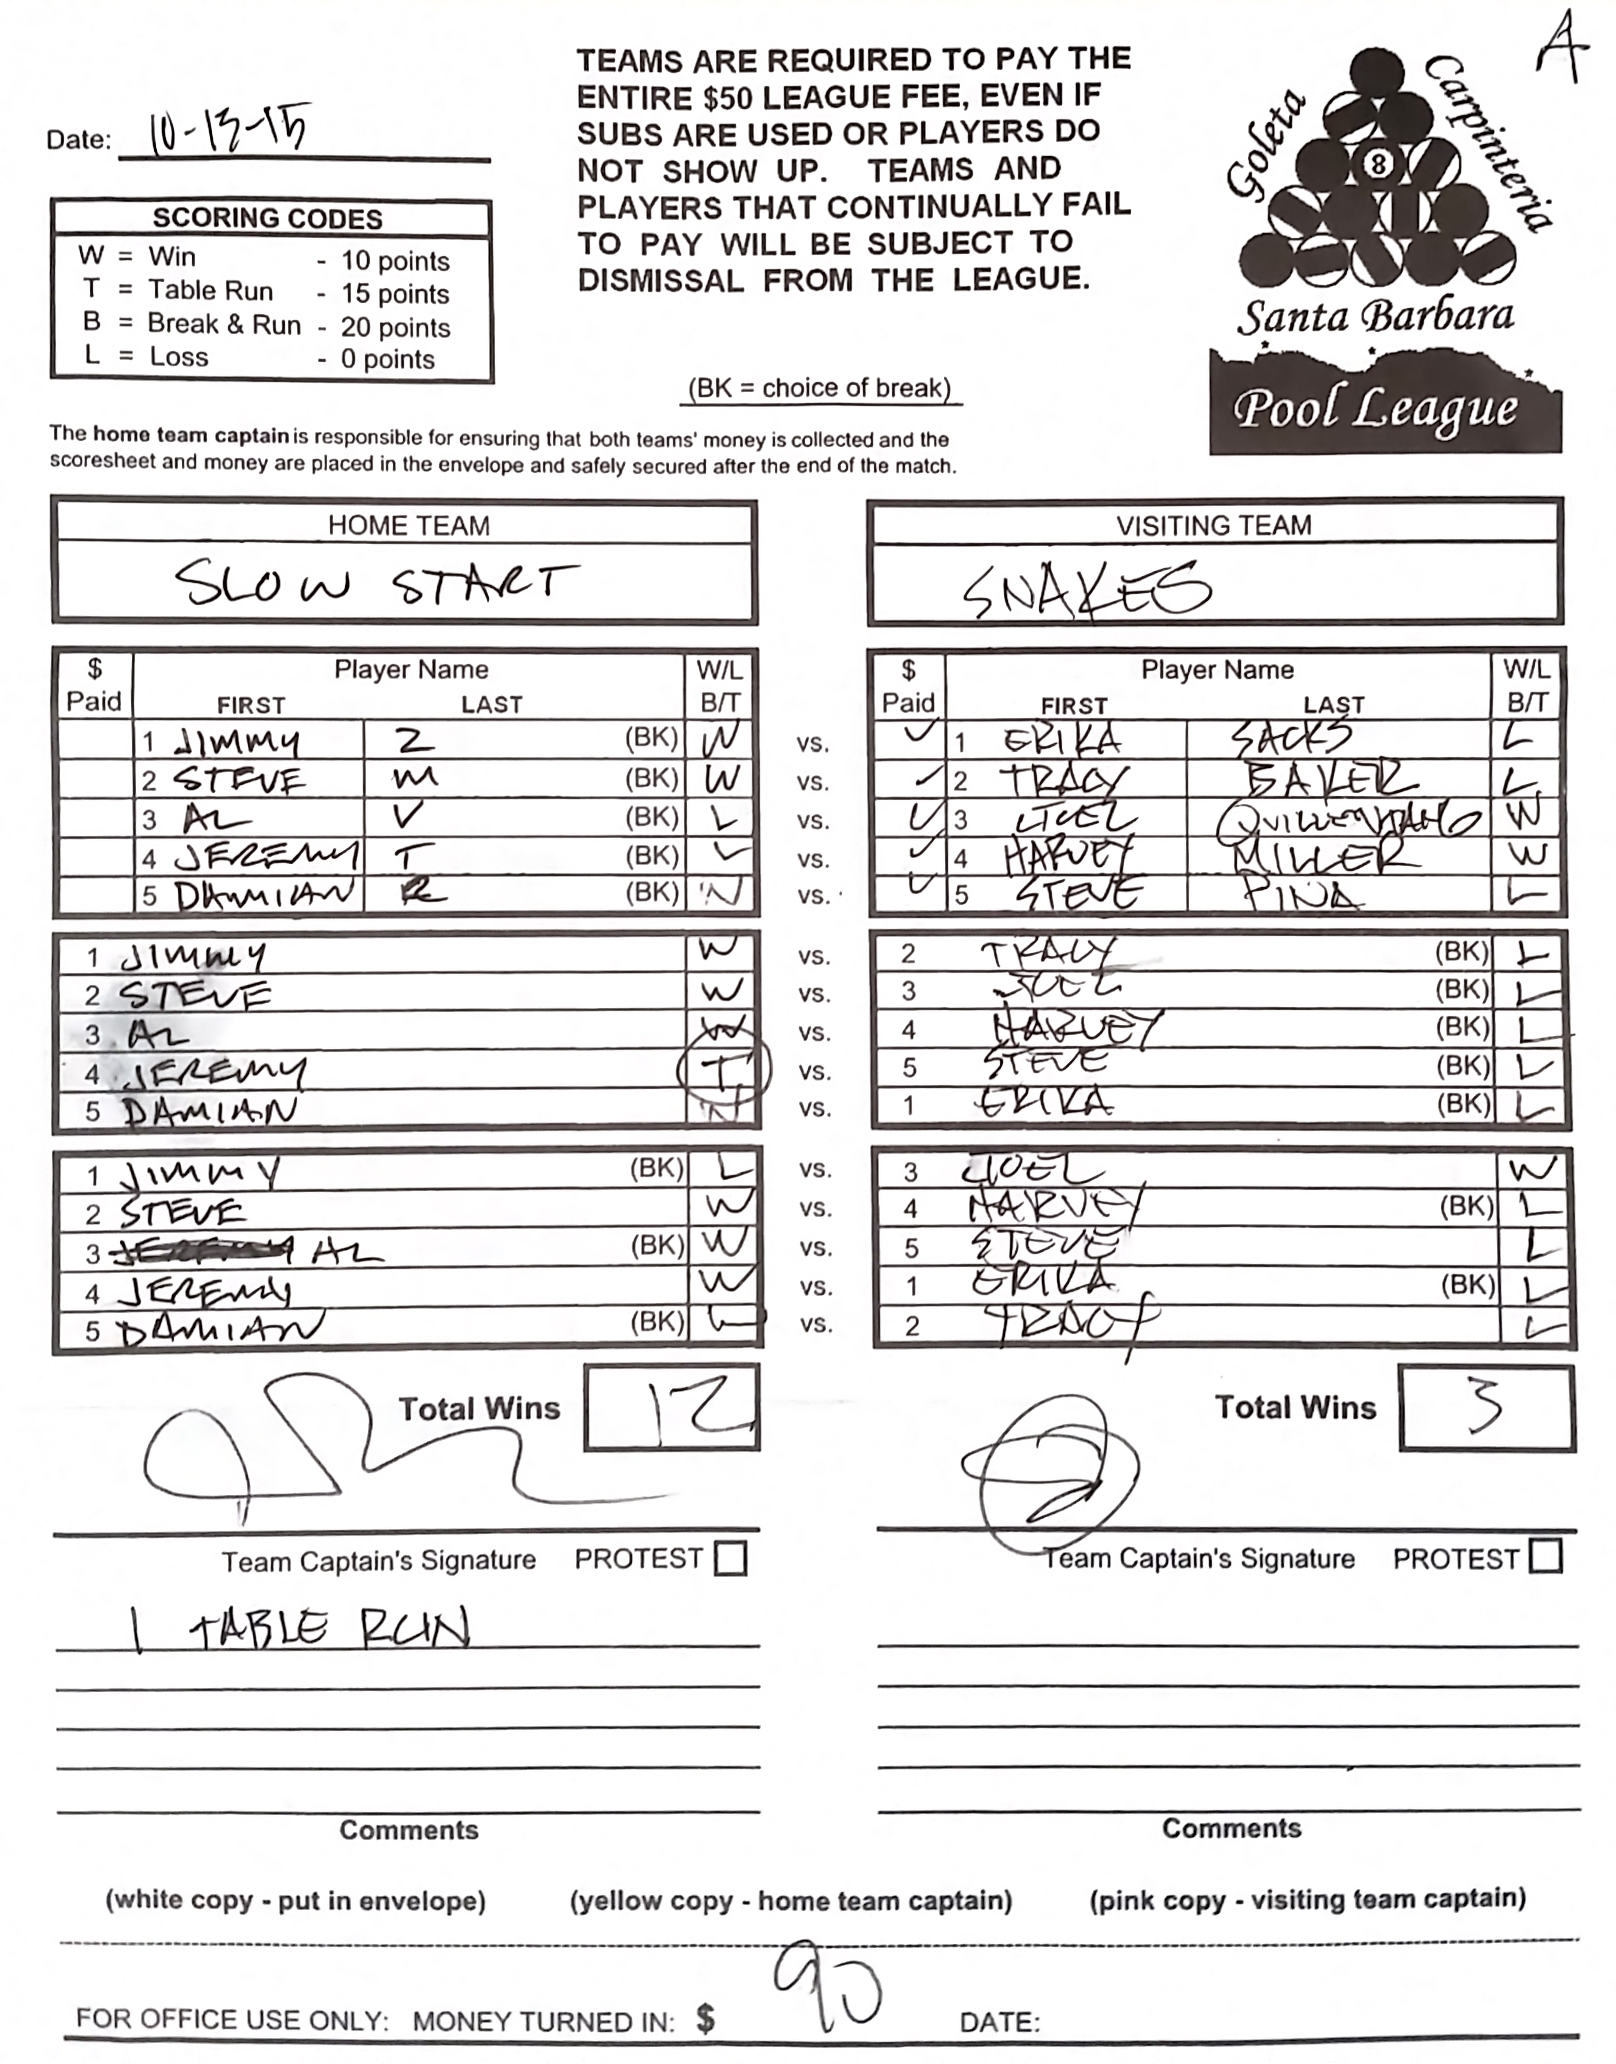 A
Date: 10-13-15
TEAMS ARE REQUIRED TO PAY THE
ENTIRE $50 LEAGUE FEE, EVEN IF
SUBS ARE USED OR PLAYERS DO
NOT SHOW UP. TEAMS AND
PLAYERS THAT CONTINUALLY FAIL
TO PAY WILL BE SUBJECT TO
DISMISSAL FROM THE LEAGUE.
Goleta
Carpinteria
8
Santa Barbara
Pool League
SCORING CODES
W = Win - 10 points
T = Table Run - 15 points
B = Break & Run - 20 points
L = Loss - 0 points
(BK = choice of break)
The home team captain is responsible for ensuring that both teams' money is collected and the
scoresheet and money are placed in the envelope and safely secured after the end of the match.
HOME TEAM VISITING TEAM
SLOW START SNAKES
$ Player Name W/L $ Player Name W/L
Paid FIRST LAST B/T Paid FIRST LAST B/T
1 JIMMY Z (BK) W vs. ✓ 1 ERIKA SACKS L
2 STEVE M (BK) W vs. ✓ 2 TRACY BAKER L
3 AL V (BK) L vs. ✓ 3 JOEL W
4 JEREMY T (BK) L vs. ✓ 4 HARVEY MILLER W
5 DAMIAN R (BK) W vs. ✓ 5 STEVE PINA L
1 JIMMY W vs. 2 TRACY (BK) L
2 STEVE W vs. 3 JOEL (BK) L
3 AL W vs. 4 HARVEY (BK) L
4 JEREMY T vs. 5 STEVE (BK) L
5 DAMIAN W vs. 1 ERIKA (BK) L
1 JIMMY (BK) L vs. 3 JOEL W
2 STEVE W vs. 4 HARVEY (BK) L
3 JEREMY AL (BK) W vs. 5 STEVE L
4 JEREMY W vs. 1 ERIKA (BK) L
5 DAMIAN (BK) vs. 2 TRACY L
Total Wins 12 Total Wins 3
Team Captain's Signature PROTEST Team Captain's Signature PROTEST
1 TABLE RUN
Comments Comments
(white copy - put in envelope) (yellow copy - home team captain) (pink copy - visiting team captain)
FOR OFFICE USE ONLY: MONEY TURNED IN: $ 90 DATE: